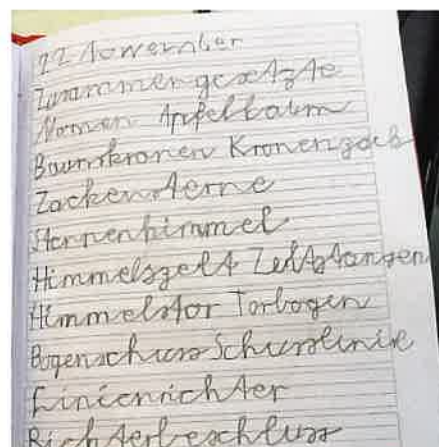 22 November
Zusammengesetzte
Nomen Apfelbaum
Baumkronen Kronenzack
Zackensterne
Sternenhimmel
Himmelszelt Zeltstangen
Himmelstor Torbogen
Bogenschuss Schusslinie
Linienrichter
Richterbeschluss